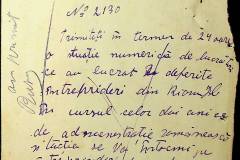 No 2130
Trimiteți in termen de 24 ore
o situație numerică de lucrăt
ce au lucrat la diferite
întreprinderi din
în cursul celor doi ani
de administrație românească
situația se va întocmi
am primit